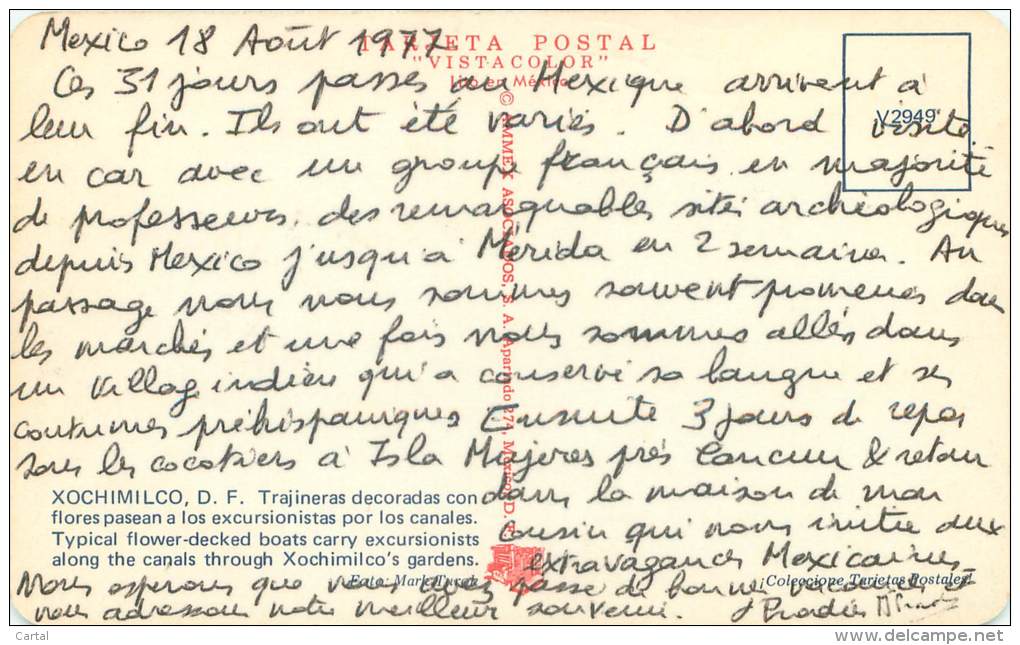 Mexico 18 Août 1977.
TARJETA POSTAL
"VISTACOLOR"
Hecho en México
Ces 31 jours passés au Mexique arrivent à
leur fin. Ils ont été variés. D'abord visite
V2949
en car avec un groupe français en majorité
de professeurs des remarquables sites archéologiques
depuis Mexico jusqu'à Mérida en 2 semaines. Au
passage nous nous sommes souvent promenés dans
les marchés et une fois nous sommes allés dans
un village indien qui a conservé sa langue et ses
coutumes préhispaniques. Ensuite 3 jours de repos
sous les cocotiers à Isla Mujeres près Cancun & retour
dans la maison de mon
cousin qui nous initie aux
extravagances Mexicaines.
Nous espérons que vous avez passé de bonnes vacances &
vous adressons notre meilleur souvenir.
© AMMEX ASOCIADOS, S. A. Apartado 274, México, D. F.
XOCHIMILCO, D. F. Trajineras decoradas con
flores pasean a los excursionistas por los canales.
Typical flower-decked boats carry excursionists
along the canals through Xochimilco's gardens.
Foto: Mark Turok
¡Coleccione Tarjetas Postales!
Cartal
www.delcampe.net